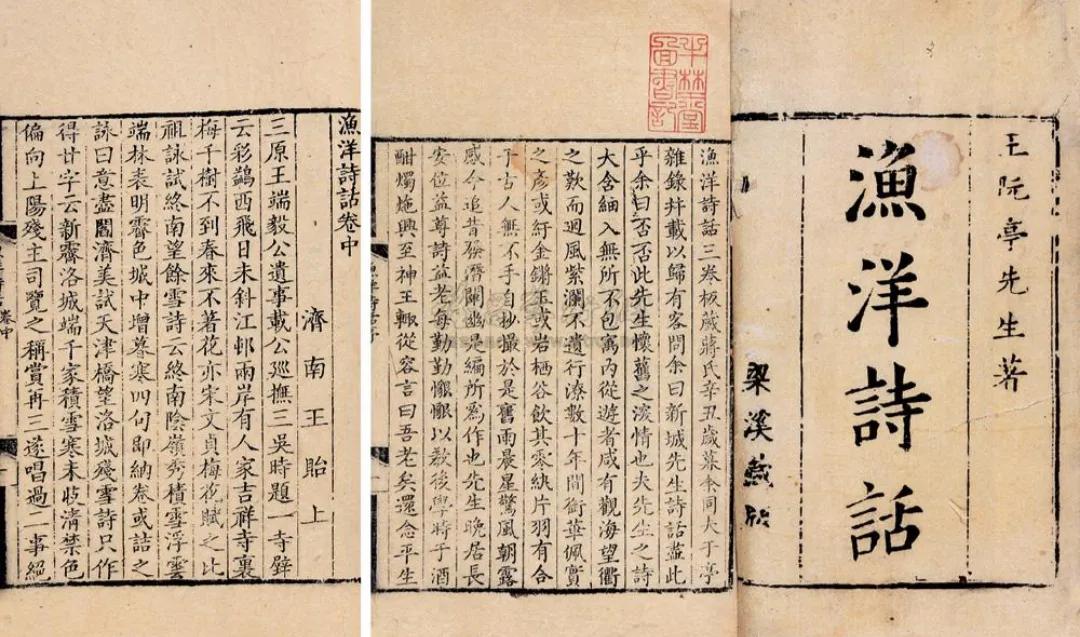 王阮亭先生著
漁洋詩話
梁溪
圖書記
漁洋詩話三卷板藏蔣氏辛丑歲暮余同大于亭
雜錄并載以歸有客問余曰新城先生詩話盡此
乎余曰否否此先生懷舊之深情也夫先生之詩
大含細入無所不包寓內從遊者咸有觀海望衢
之歎而迴風紫瀾不遺行潦數十年間銜華佩實
之彥或紆金鏘玉或岩棲谷飲其零紈片羽有合
于古人無不手自抄撮於是舊雨晨星驚風朝露
感今追昔發潛闡幽是編所為作也先生晚居長
安位益尊詩益老每勤勤懇懇以教後學時于酒
酣燭灺興至神王輒從容言曰吾老矣還念平生
漁洋詩話卷中
濟南王貽上
三原王端毅公遺事載公巡撫三吳時題一寺壁
云彩鷁西飛日未斜江邨兩岸有人家吉祥寺裏
梅千樹不到春來不著花亦宋文貞梅花賦之比
祖詠試終南望餘雪詩云終南陰嶺秀積雪浮雲
端林表明霽色城中增暮寒四句即納卷或詰之
詠曰意盡閻濟美試天津橋望洛城殘雪詩只作
得廿字云新霽洛城端千家積雪寒未收清禁色
偏向上陽殘主司覽之稱賞再三遂唱過一事絕
卷中